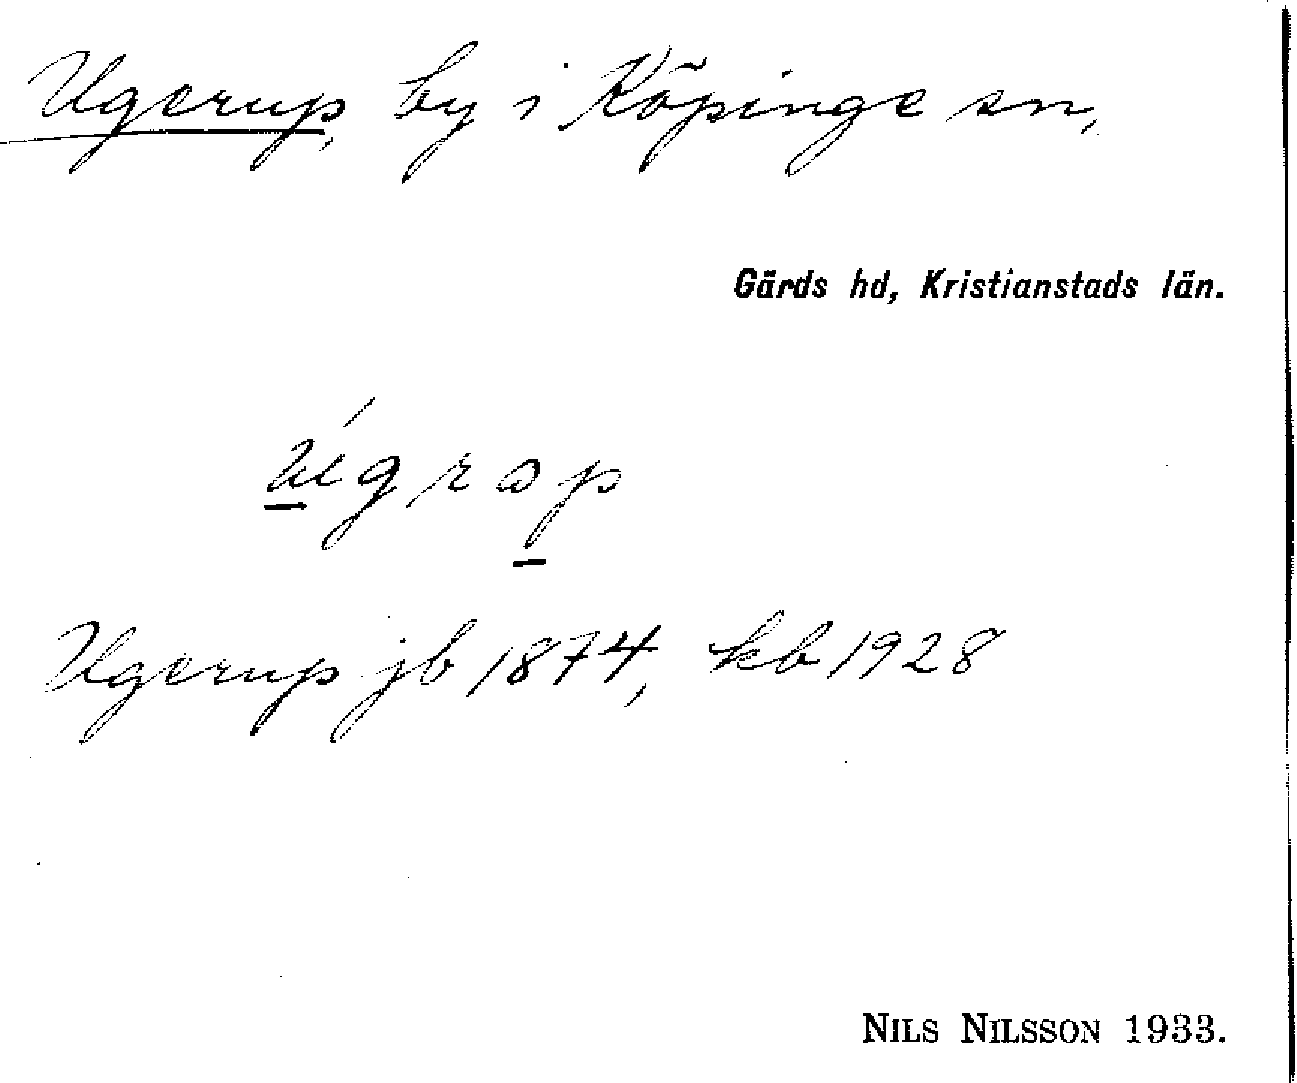 Ugerup, by i Köpinge sn,
Gärds hd, Kristianstads län.
úgrop
Ugerup jb 1874, kb 1928
NILS NILSSON 1933.